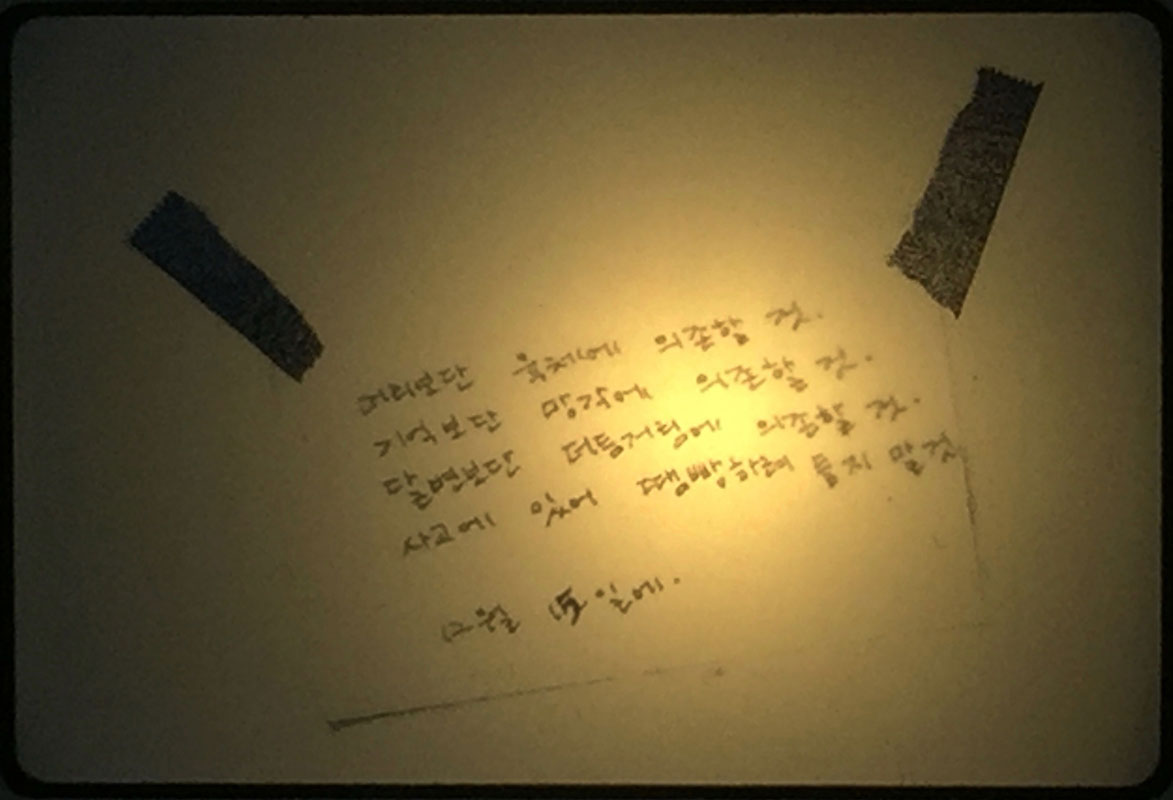 머리보단 육체에 의존할 것.
기억보단 망각에 의존할 것.
달변보단 더듬거림에 의존할 것.
사고에 있어 땡빵하려 들지 말 것
12월 15일에.